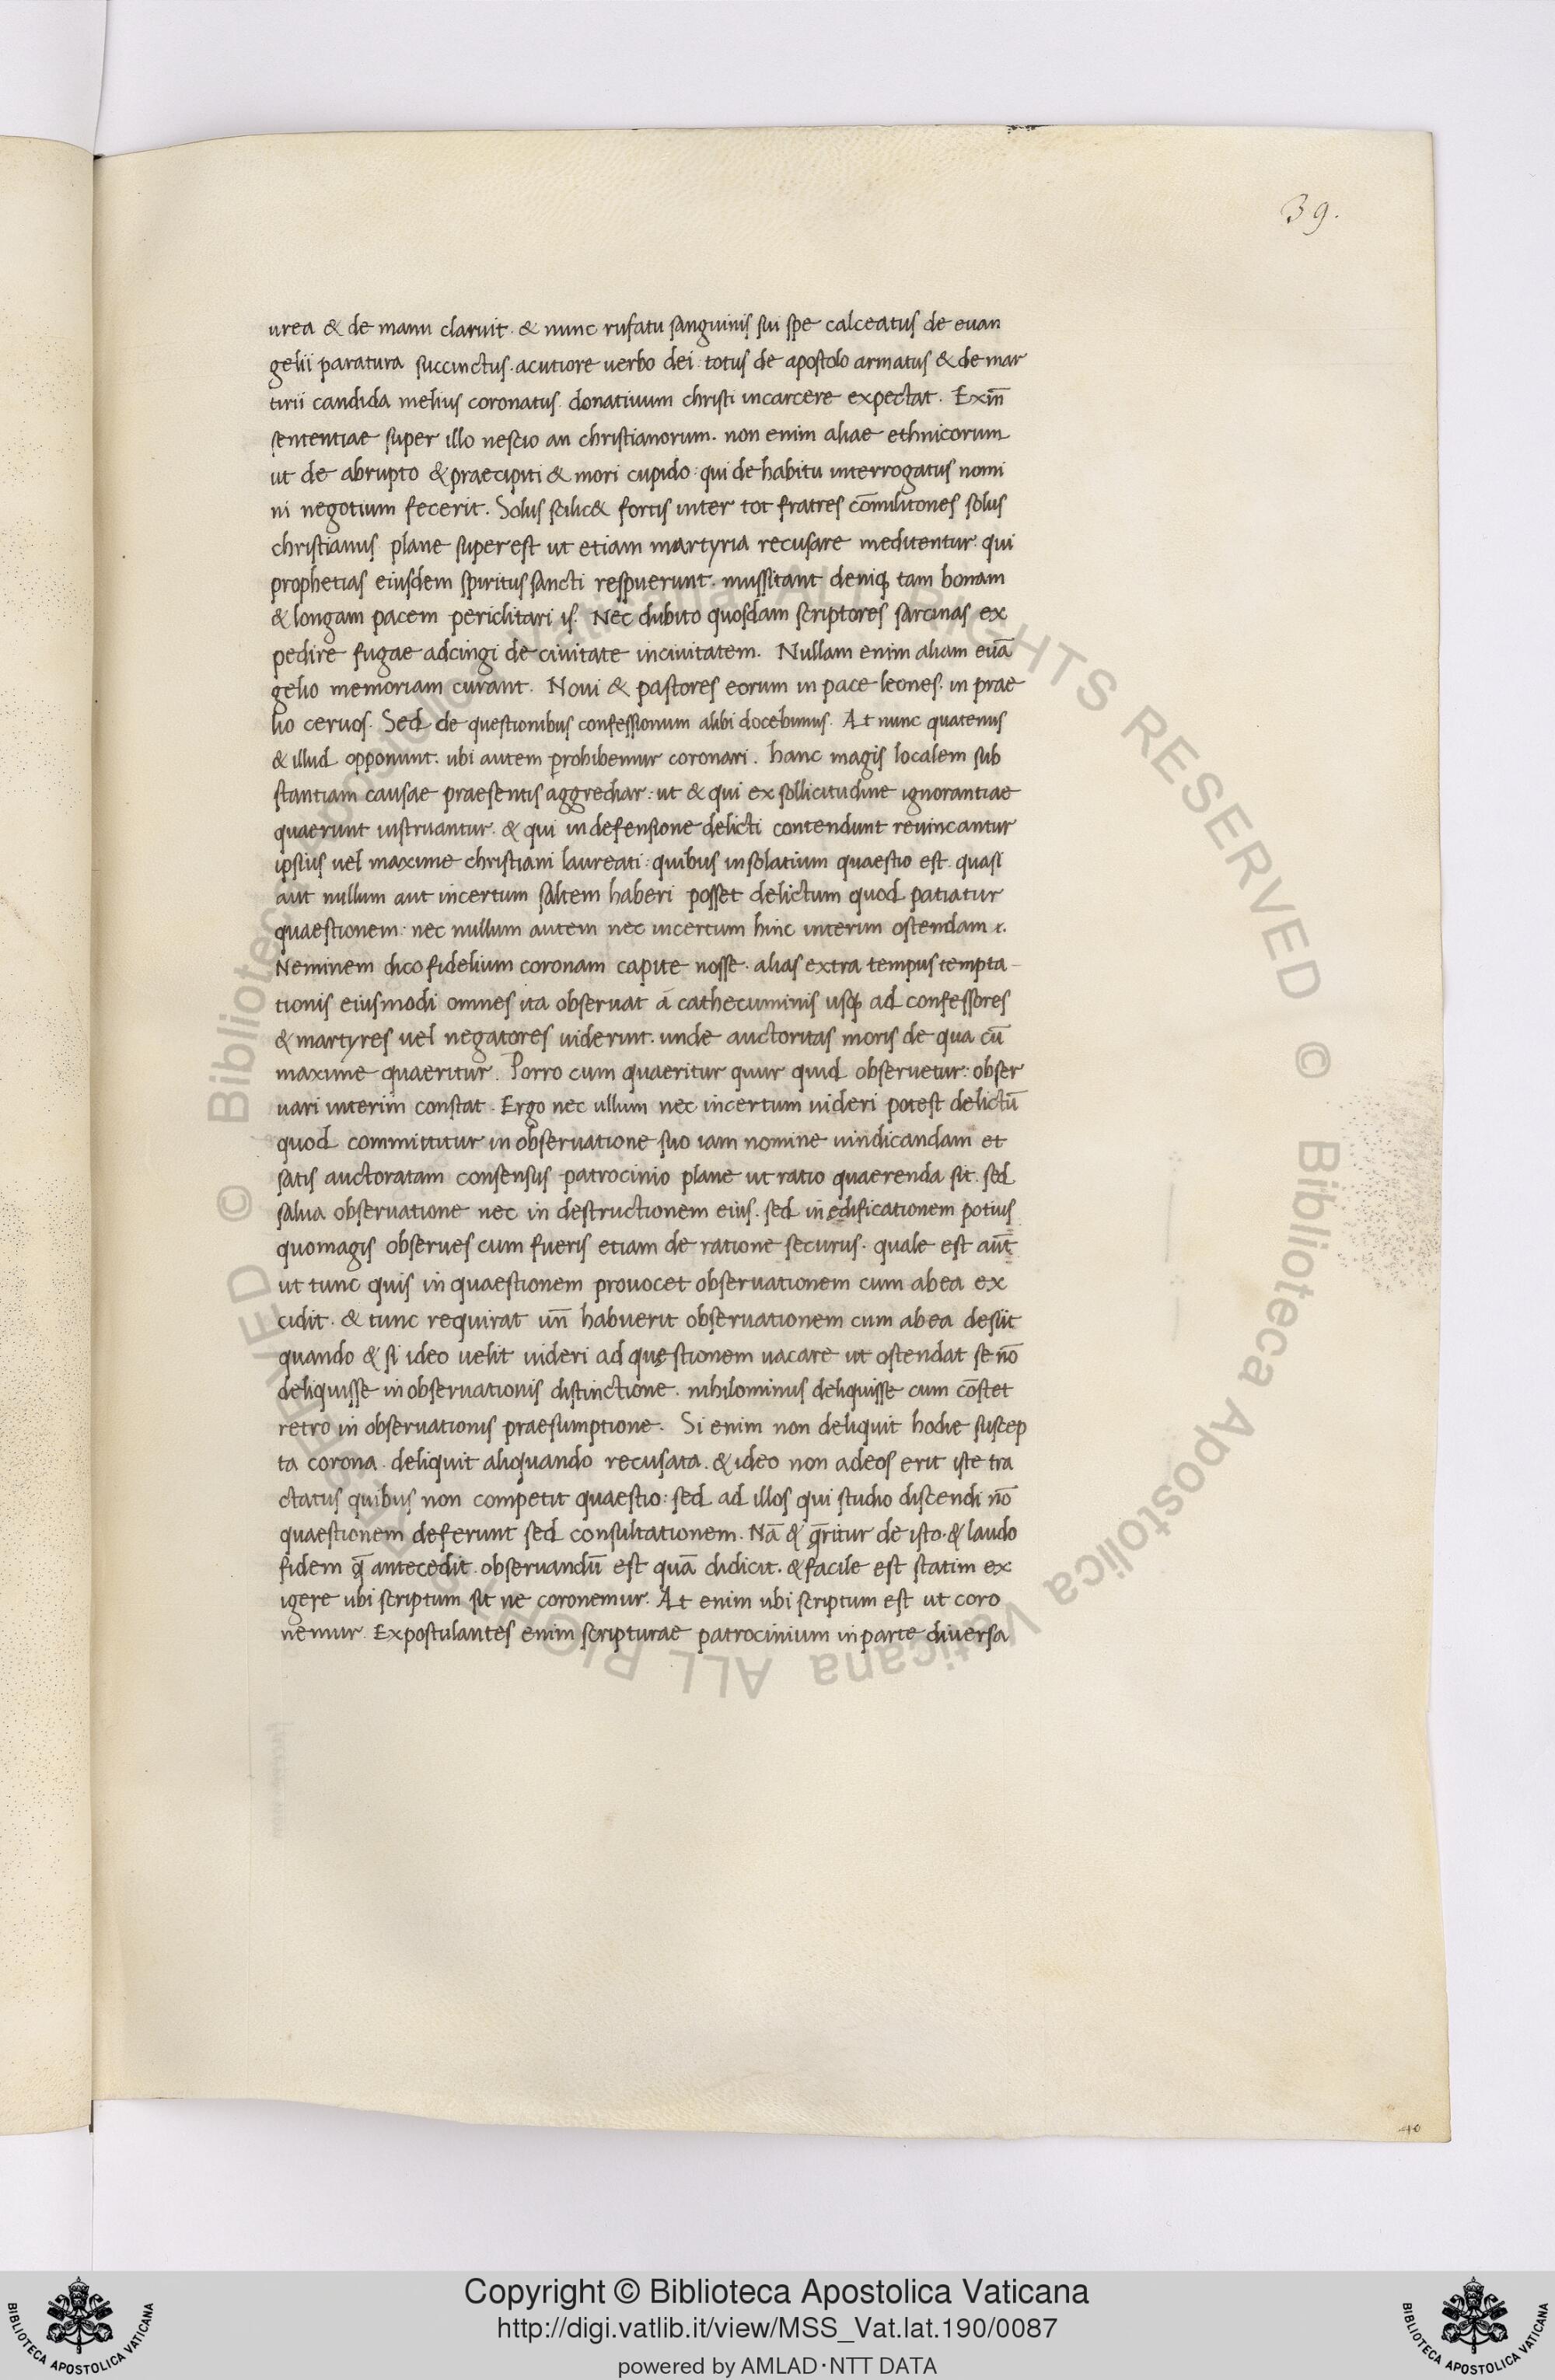 39.
urea & de manu claruit. & nunc rufatu sanguinis sui spe calceatus de euan
gelii paratura succinctus. acutiore uerbo dei totus de apostolo armatus & de mar
tirii candida melius coronatus. donatiuum christi incarcere expectat. Exin̄
sententiae super illo nescio an christianorum. non enim aliae ethnicorum
ut de abrupto & praecipiti & mori cupido: qui de habitu interrogatus nomi
ni negotium fecerit. Solus scilic& fortis inter tot fratres cōmilitones solus
christianus plane superest ut etiam martyria recusare meditentur. qui
prophetias eiusdem spiritus sancti respuerunt. mussitant deniq; tam bonam
& longam pacem periclitari is. Nec dubito quosdam scriptores sarcinas ex
pedire fugae adcingi de ciuitate inciuitatem. Nullam enim aliam euā
gelio memoriam curant. Noui & pastores eorum in pace leones. in prae
lio ceruos. Sed de questionibus confessionum alibi docebimus. At nunc quatenus
& illud opponunt. ubi autem prohibemur coronari. hanc magis localem sub
stantiam causae praesentis aggrediar: ut & qui ex sollicitudine ignorantiae
quaerunt instruantur. & qui indefensione delicti contendunt reuincantur
ipsius uel maxime christiani laureati: quibus insolatium quaestio est. quasi
aut nullum aut incertum saltem haberi posset delictum quod patiatur
quaestionem: nec nullum autem nec incertum hinc interim ostendam.
Neminem dico fidelium coronam capite nosse. alias extra tempus tempta-
tionis eiusmodi omnes ita obseruat á cathecuminis usq; ad confessores
& martyres uel negatores uiderint. unde auctoritas moris de qua cū
maxime quaeritur. Porro cum quaeritur quur quid obseruetur: obser
uari interim constat. Ergo nec ullum nec incertum uideri potest delictū
quod committitur in obseruatione suo iam nomine uindicandam et
satis auctoratam consensus patrocinio plane ut ratio quaerenda sit. sed
salua obseruatione nec in destructionem eius. sed in edificationem potius
quomagis obserues cum fueris etiam de ratione securus. quale est aūt
ut tunc quis in quaestionem prouocet obseruationem cum abea ex
cidit. & tunc requirat un̄ habuerit obseruationem cum abea desiit
quando & si ideo uelit uideri ad questionem uacare ut ostendat se nō
deliquisse in obseruationis distinctione. nihilominus deliquisse cum cōstet
retro in obseruationis praesumptione. Si enim non deliquit hodie suscep
ta corona. deliquit aliquando recusata. & ideo non adeos erit iste tra
ctatus quibus non competit quaestio: sed ad illos qui studio discendi nō
quaestionem deferunt sed consultationem. Nā & q̄ritur de isto. & laudo
fidem q̄ antecedit. obseruandū est quā didicit. & facile est statim ex
igere ubi scriptum sit ne coronemur. At enim ubi scriptum est ut coro
nemur. Expostulantes enim scripturae patrocinium inparte diuersa
40
© Biblioteca Apostolica Vaticana ALL RIGHTS RESERVED © Biblioteca Apostolica Vaticana ALL RIGHTS RESERVED
Copyright © Biblioteca Apostolica Vaticana
http://digi.vatlib.it/view/MSS_Vat.lat.190/0087
powered by AMLAD·NTT DATA
BIBLIOTECA APOSTOLICA VATICANA
BIBLIOTECA APOSTOLICA VATICANA